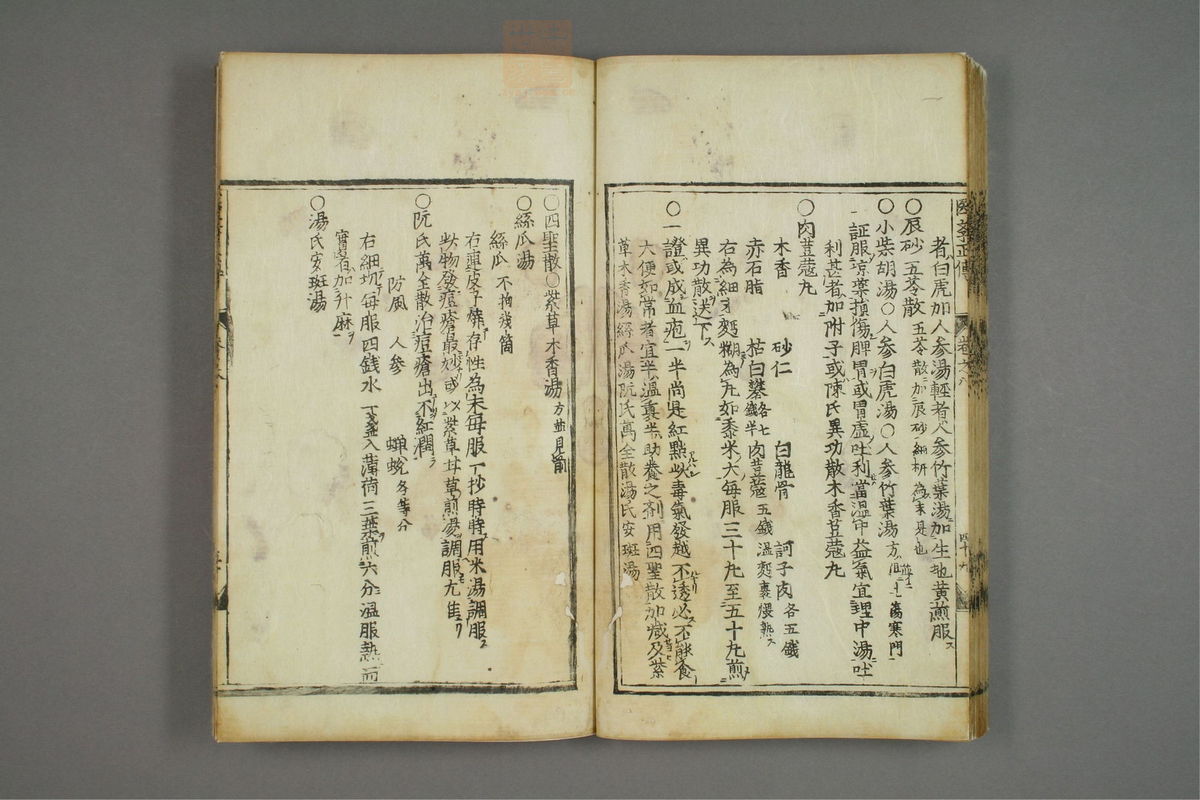 者白虎加人参湯輕者人参竹葉湯加生地黄煎服
〇辰砂五苓散五苓散加辰砂細研為末是也
〇小柴胡湯〇人参白虎湯〇人参竹葉湯方並傷寒門
一証服凉藥損傷脾胃或胃虚吐利當温中益氣宜理中湯吐
利甚者加附子或陳氏異功散木香荳蔻丸
〇肉荳蔻丸
木香 砂仁 白龍骨 訶子肉各五錢
赤石脂 枯白礬各七錢半 肉荳蔻五錢温麪裹煨熟
右為細末麪糊為丸如黍米大毎服三十丸至五十丸煎
異功散送下
〇一證或成血疱一半尚是紅點此毒氣發越不透必不能食
大便如常者宜半温裏半助養之剤用四聖散加減及紫
草木香湯絲瓜湯阮氏萬全散湯氏安斑湯
醫學正傳
巻之八
四十九
〇四聖散〇紫草木香湯方並見前
〇絲瓜湯
絲瓜不拘幾箇
右連皮子燒存性為末毎服一抄時時用米湯調服
此物發痘瘡最妙或以紫草甘草煎湯調服尤佳
〇阮氏萬全散治痘瘡出不紅潤
防風 人参 蝉蛻各等分
右細切毎服四錢水一盞入薄荷三葉煎六分温服熱而
實者加升麻
〇湯氏安斑湯